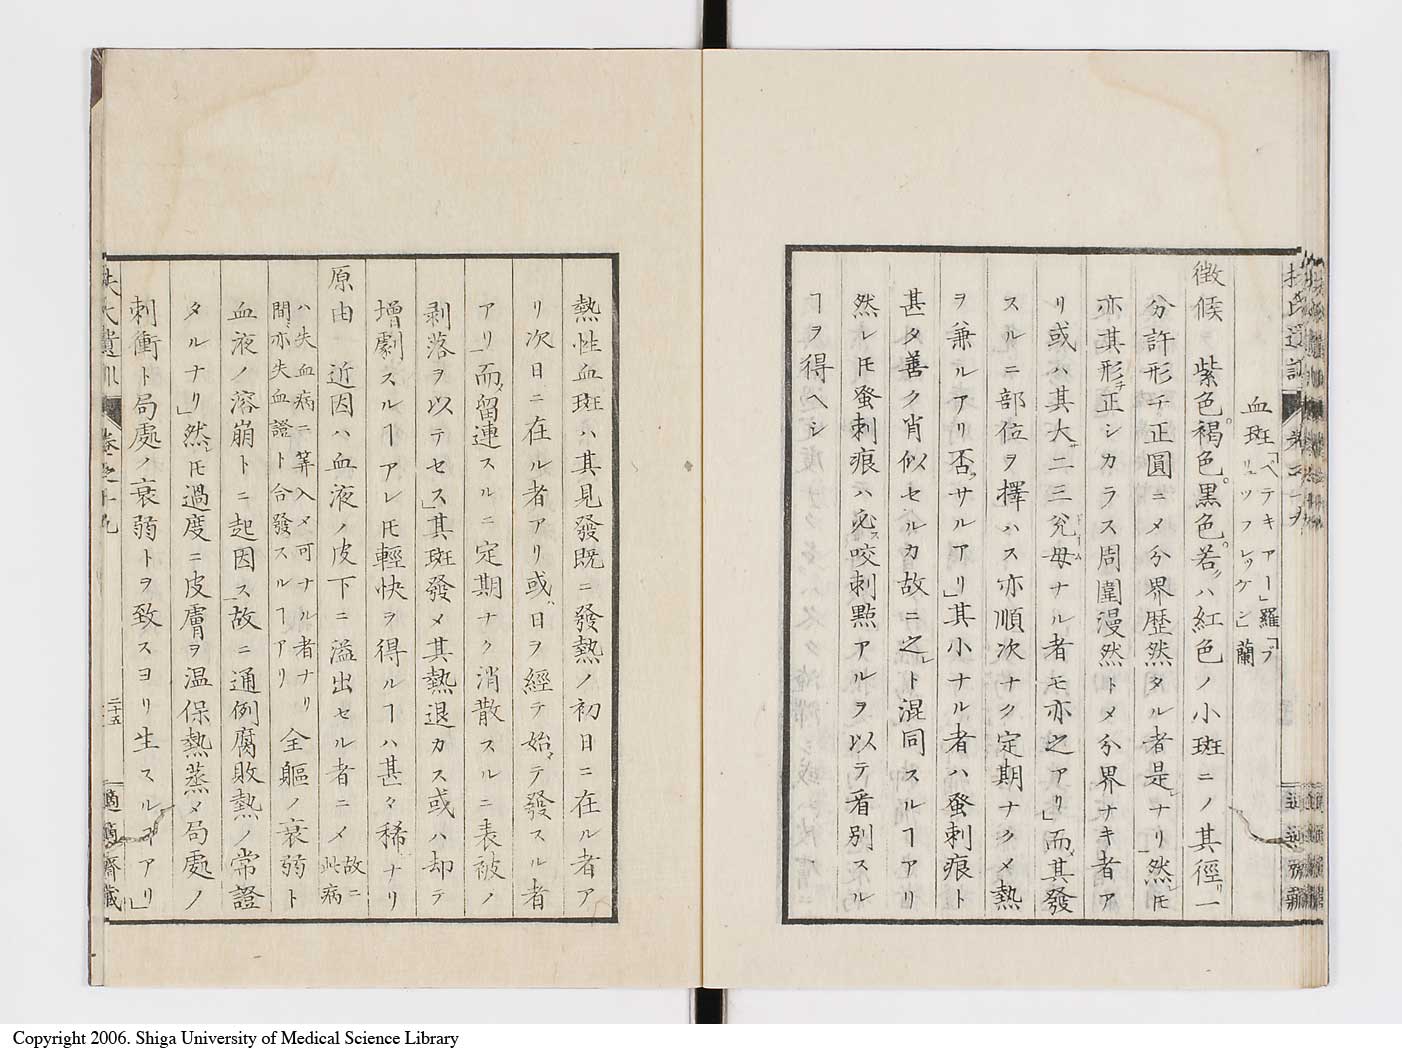 血斑「ペテキアー」羅「ブ
リツフレッケン」蘭
徴候 紫色。褐色。黒色。若クハ紅色ノ小斑ニノ其徑リ一
分許形チ正圓ニメ分界歴然タル者是レナリ」然レ𪜈
亦其形チ正シカラス周圍漫然トメ分界ナキ者ア
リ或ハ其大サ二三兊母ナル者モ亦之アリ」而メ其發
スルニ部位ヲ擇ハス亦順次ナク定期ナクメ熱
ヲ兼ルアリ否ラサルアリ」其小ナル者ハ蚤刺痕ト
甚タ善ク肖似セルカ故ニ之レト混同スルヿアリ
然レ𪜈蚤刺痕ハ必ス咬刺點アルヲ以テ看別スル
ヿヲ得ヘシ
熱性血斑ハ其見發既ニ發熱ノ初日ニ在ル者ア
リ次日ニ在ル者アリ或ハ日ヲ經テ始メテ發スル者
アリ」而メ留連スルニ定期ナク消散スルニ表被ノ
剥落ヲ以テセス」其斑發メ其熱退カス或ハ却テ
增劇スルヿアレ𪜈輕快ヲ得ルヿハ甚タ稀レナリ
原由 近因ハ血液ノ皮下ニ溢出セル者ニメ 故ニ此病
ハ失血病ニ筭入メ可ナル者ナリ
間〻亦失血證ト合發スルヿアリ 全軀ノ衰弱ト
血液ノ溶崩トニ起因ス故ニ通例腐敗熱ノ常證
タルナリ」然レ𪜈過度ニ皮膚ヲ温保熱蒸メ局處ノ
刺衝ト局處ノ衰弱トヲ致スヨリ生スルヿアリ」
卷之十九
二十五
適適齋藏
Copyright 2006. Shiga University of Medical Science Library